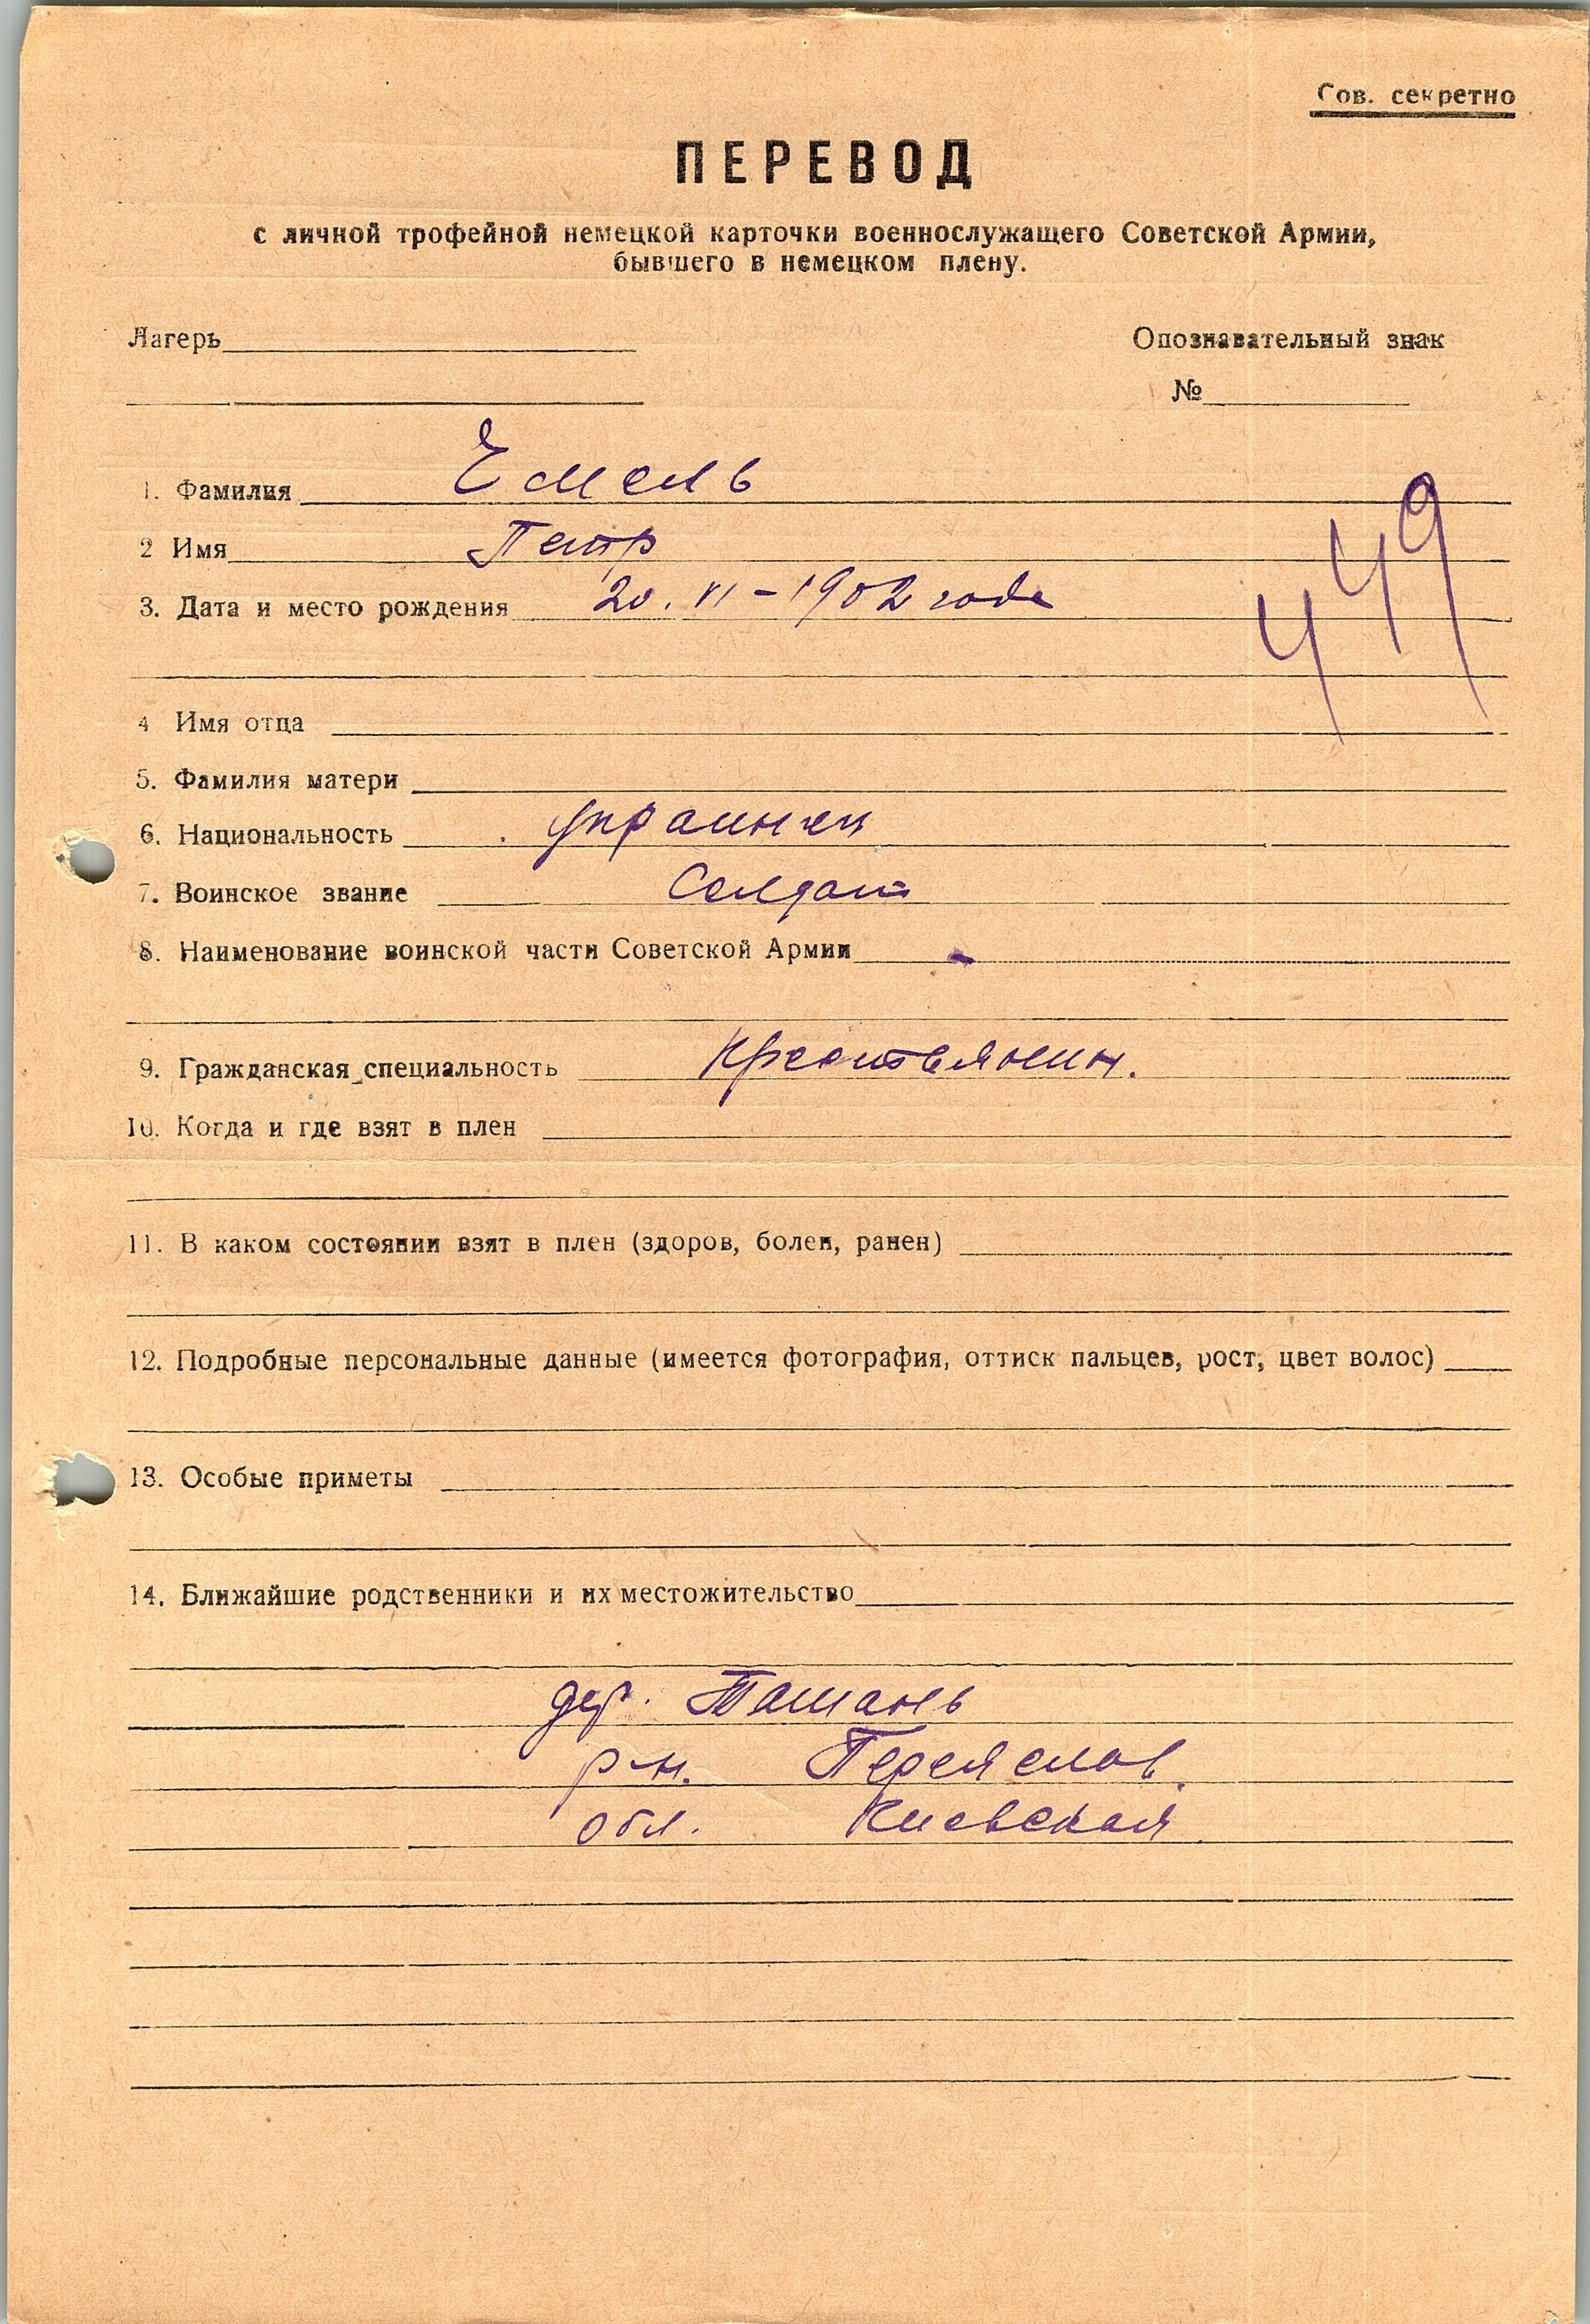 Сов. секретно
ПЕРЕВОД
с личной трофейной немецкой карточки военнослужащего Советской Армии,
бывшего в немецком плену.
Лагерь
Опознавательный знак
№
1. Фамилия Емель
2 Имя Петр
3. Дата и место рождения 20. VI - 1902 года
449
4 Имя отца
5. Фамилия матери
6. Национальность украинец
7. Воинское звание Солдат
8. Наименование воинской части Советской Армии -
9. Гражданская специальность Крестьянин.
10. Когда и где взят в плен
11. В каком состоянии взят в плен (здоров, болен, ранен)
12. Подробные персональные данные (имеется фотография, оттиск пальцев, рост, цвет волос)
13. Особые приметы
14. Ближайшие родственники и их местожительство
дер. Ташань
р-н. Переяслав.
обл. Киевская